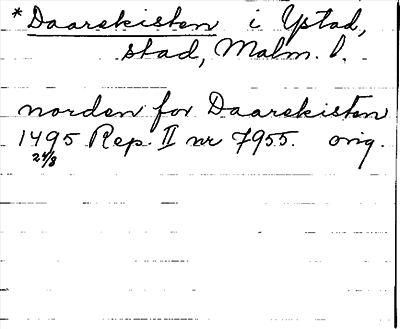 *Daarekisten i Ystad,
stad, Malm. l.
norden for Daarekisten
1495 Rep. II nr 7955. orig.
24/8